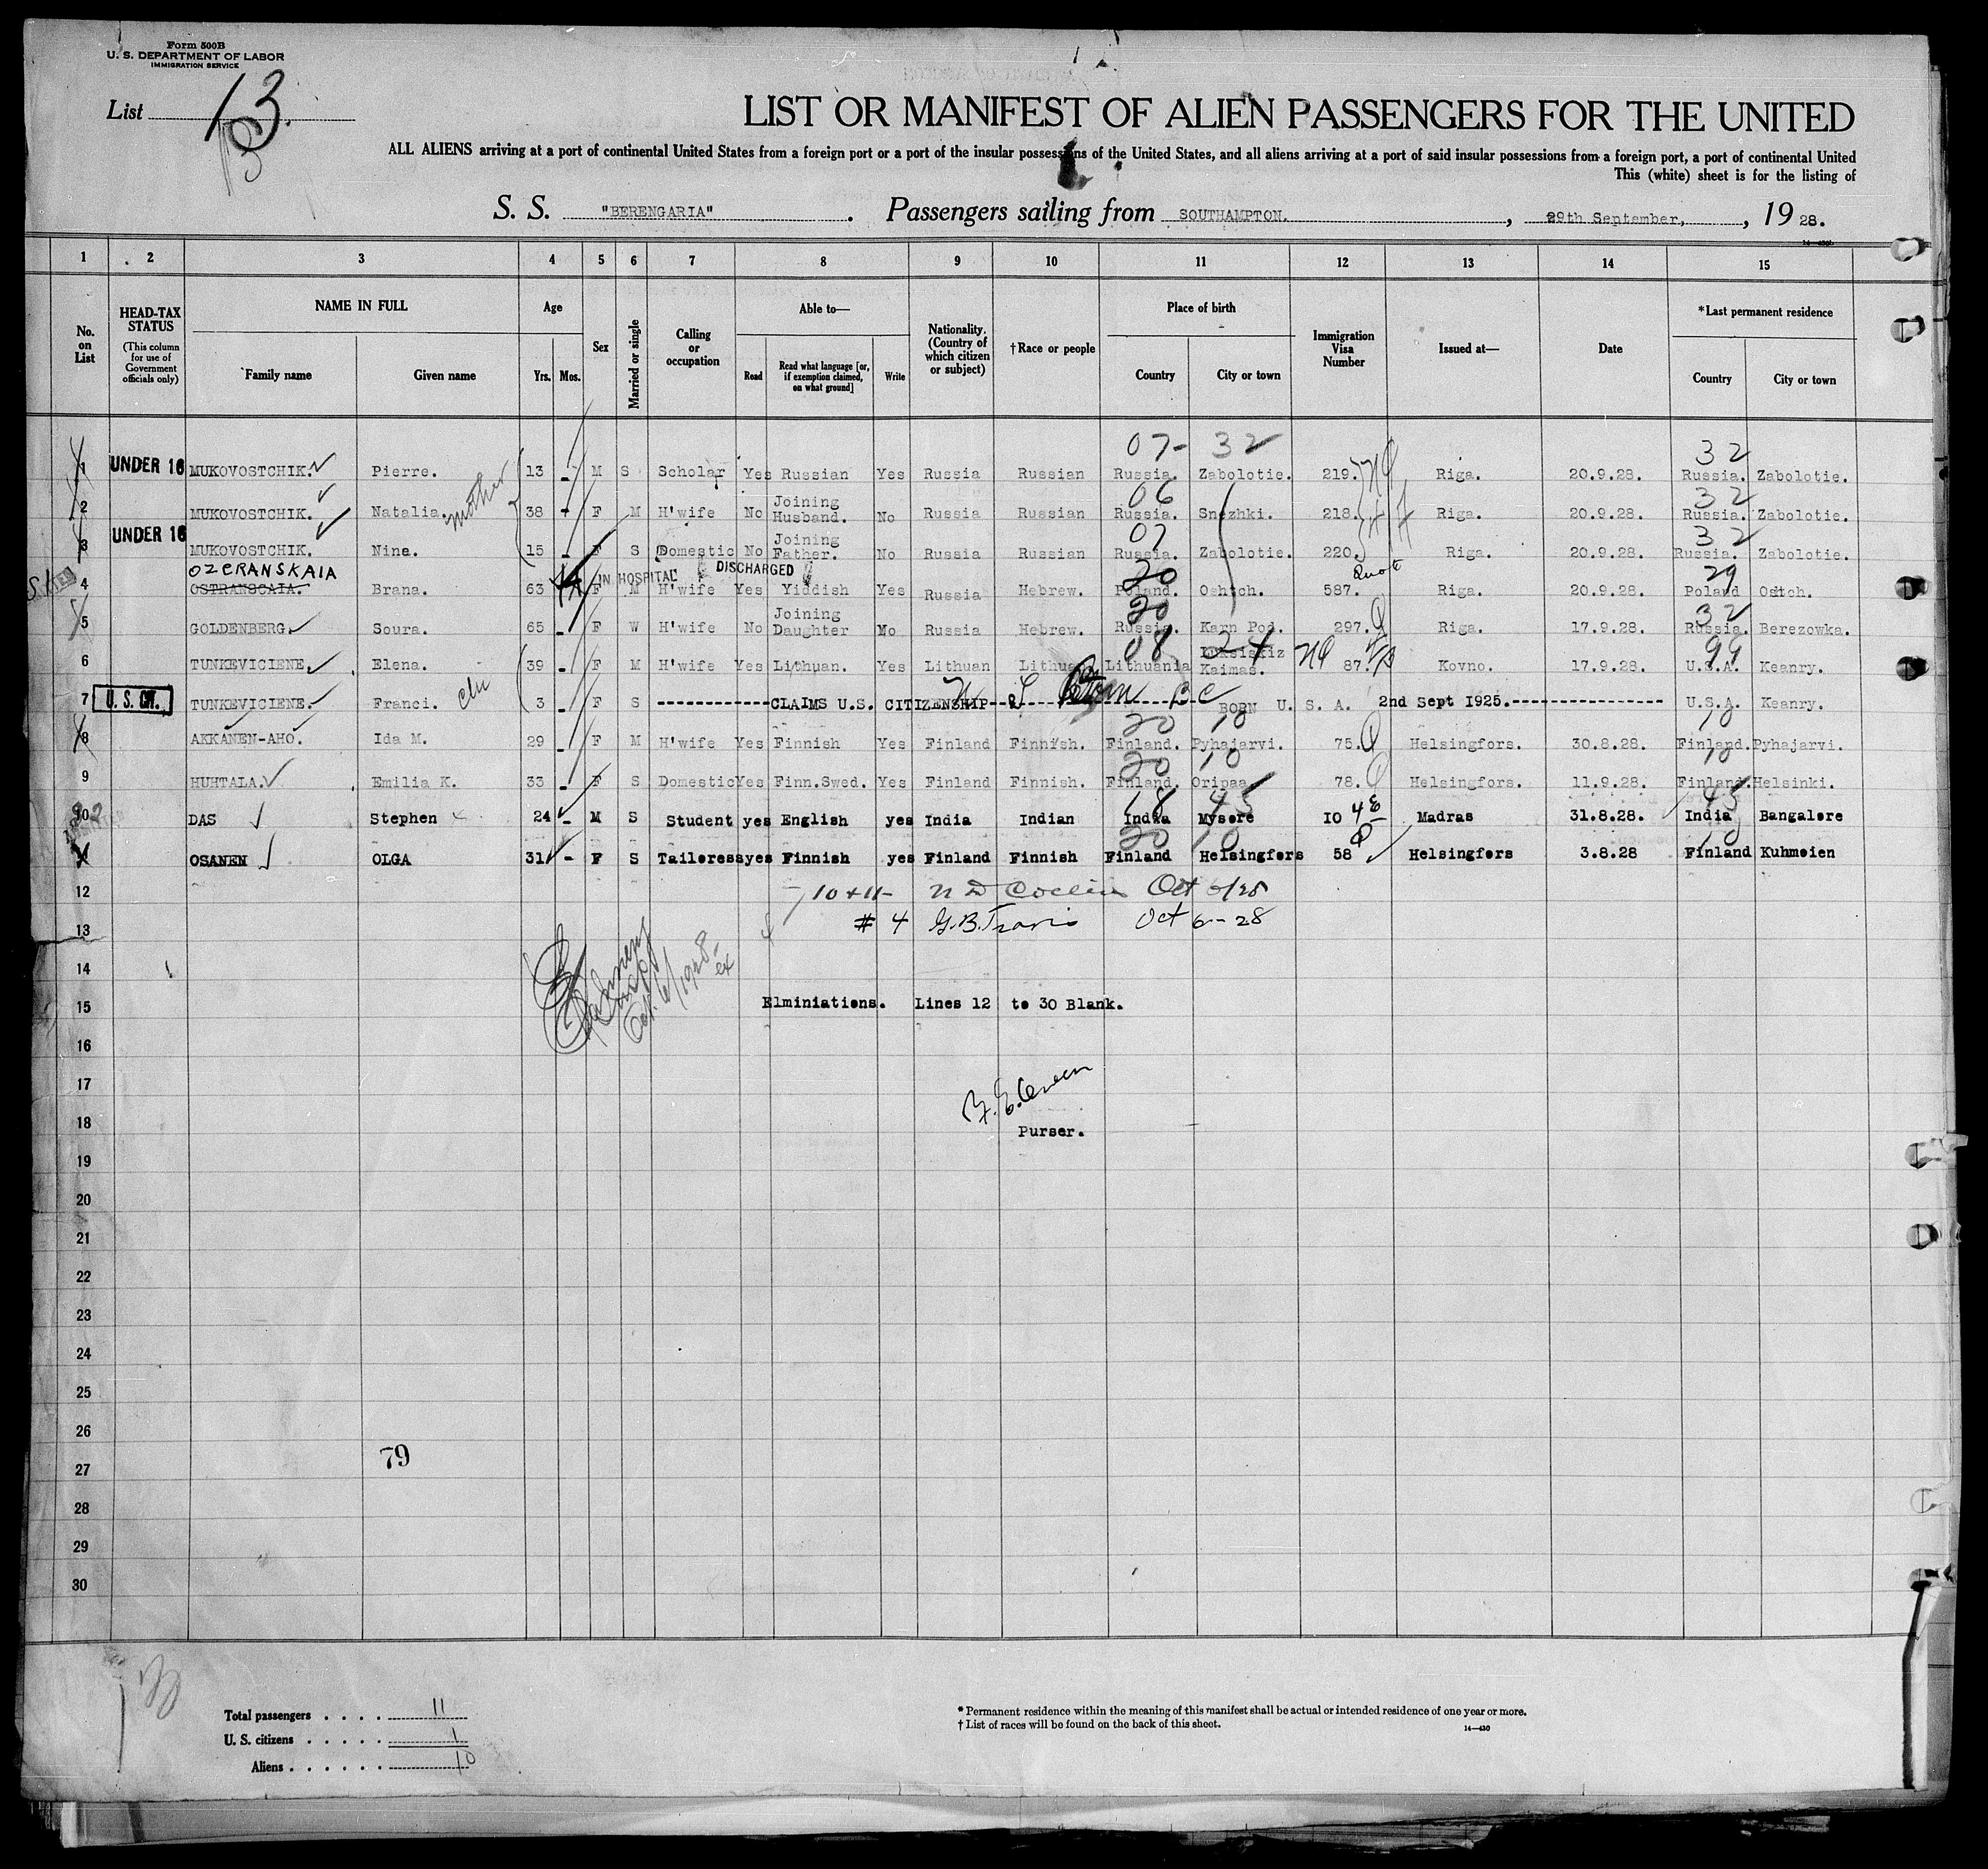 Form 500B
U. S. DEPARTMENT OF LABOR
IMMIGRATION SERVICE
List 13.
13
LIST OR MANIFEST OF ALIEN PASSENGERS FOR THE UNITED
ALL ALIENS arriving at a port of continental United States from a foreign port or a port of the insular possessions of the United States, and all aliens arriving at a port of said insular possessions from a foreign port, a port of continental United
This (white) sheet is for the listing of
S. S. "BERENGARIA". Passengers sailing from SOUTHAMPTON., 29th September,, 19 28.
1 2 3 4 5 6 7 8 9 10 11 12 13 14 15
No. on List
HEAD-TAX STATUS
(This column for use of Government officials only)
NAME IN FULL
Family name Given name
Age
Yrs. Mos.
Sex
Married or single
Calling or occupation
Able to—
Read
Read what language [or, if exemption claimed, on what ground]
Write
Nationality. (Country of which citizen or subject)
†Race or people
Place of birth
Country City or town
Immigration Visa Number
Issued at—
Date
*Last permanent residence
Country City or town
07- 32 32
1 UNDER 16 MUKOVOSTCHIK. Pierre. 13 - M S Scholar Yes Russian Yes Russia Russian Russia. Zabolotie. 219. NQ Riga. 20.9.28. Russia. Zabolotie.
06 32
2 MUKOVOSTCHIK. Natalia. mother 38 - F M H'wife No Joining Husband. No Russia Russian Russia. Snezhki. 218. Riga. 20.9.28. Russia. Zabolotie.
07 32
3 UNDER 16 MUKOVOSTCHIK. Nina. 15 - F S Domestic No Joining Father. No Russia Russian Russia. Zabolotie. 220. Riga. 20.9.28. Russia. Zabolotie.
OZERANSKAIA IN HOSPITAL DISCHARGED 20 Quota 29
4 OSTRANSCAIA. Brana. 63 F M H'wife Yes Yiddish Yes Russia Hebrew. Poland. Oshtch. 587. Riga. 20.9.28. Poland Ostch.
20 32
5 GOLDENBERG. Soura. 65 - F W H'wife No Joining Daughter No Russia Hebrew. Russia. Karn Pod. 297. Q Riga. 17.9.28. Russia. Berezowka.
08 24 99
6 TUNKEVICIENE. Elena. 39 - F M H'wife Yes Lithuan. Yes Lithuan Lithua Lithuania Kaimas. NQ 87. Kovno. 17.9.28. U.S.A. Keanry.
7 U. S. CIT. TUNKEVICIENE. Franci. 3 - F S ------------CLAIMS U.S. CITIZENSHIP------------ BORN U. S. A. 2nd Sept 1925.---------------- U.S.A. Keanry.
20 10 10
8 AKKANEN-AHO. Ida M. 29 - F M H'wife Yes Finnish Yes Finland Finnish. Finland. Pyhajarvi. 75. Q Helsingfors. 30.8.28. Finland. Pyhajarvi.
20 10 10
9 HUHTALA. Emilia K. 33 - F S Domestic Yes Finn.Swed. Yes Finland Finnish. Finland. Oripaa 78. Q Helsingfors. 11.9.28. Finland. Helsinki.
18 45 45
10 DAS Stephen 24 - M S Student yes English yes India Indian India Mysore 10 4E Madras 31.8.28. India Bangalore
20 10 10
11 OSANEN OLGA 31 - F S Tailoress yes Finnish yes Finland Finnish Finland Helsingfors 58 Q Helsingfors 3.8.28 Finland Kuhmoien
12 10+11-
13 # 4 G.B.Travis Oct 6-28
14
15 Elminiations. Lines 12 to 30 Blank.
16
17
18 Purser.
19
20
21
22
23
24
25
26
27 79
28
29
30
Total passengers . . . . 11
U. S. citizens . . . . . 1
Aliens . . . . . . 10
*Permanent residence within the meaning of this manifest shall be actual or intended residence of one year or more.
†List of races will be found on the back of this sheet. 14—430